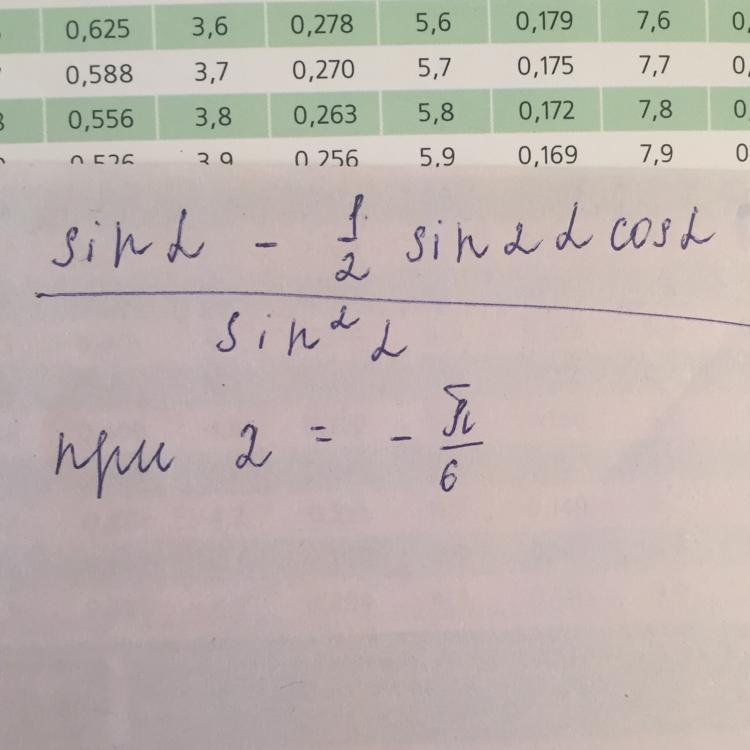 0,625 3,6 0,278 5,6 0,179 7,6 0,
0,588 3,7 0,270 5,7 0,175 7,7 0,
3 0,556 3,8 0,263 5,8 0,172 7,8 0,
0,526 3,9 0,256 5,9 0,169 7,9 0
sin α - 1/2 sin 2 α cos α
sin² α
при α = - π/6